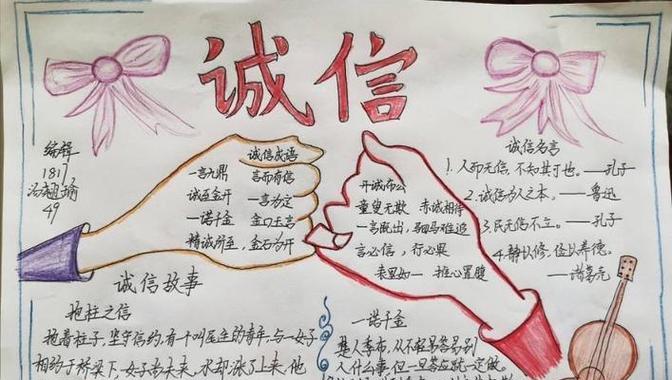 诚信
编辑
1817
49
诚信成语
一言九鼎 言而有信
诚至金开 一言为定
一诺千金 金口玉言
精诚所至,金石为开
开诚布公
童叟无欺 赤诚相待
一言既出,驷马难追
言必信,行必果
表里如一 推心置腹
诚信名言
1.人而无信,不知其可也。——孔子
2.诚信为人之本。——鲁迅
3.民无信不立。——孔子
4.静以修,俭以养德。
——诸葛亮
诚信故事
抱柱之信
抱着柱子,坚守信约,有个叫尾生的青年,与一女子
相约于桥梁下,女子尚未来,水却涨了上来,他
一诺千金
楚人季布,从不轻易答别
人什么事,但一旦答应就一定做。